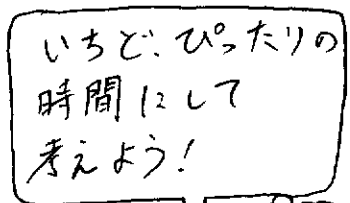 いちど、ぴったりの
時間にして
考えよう!